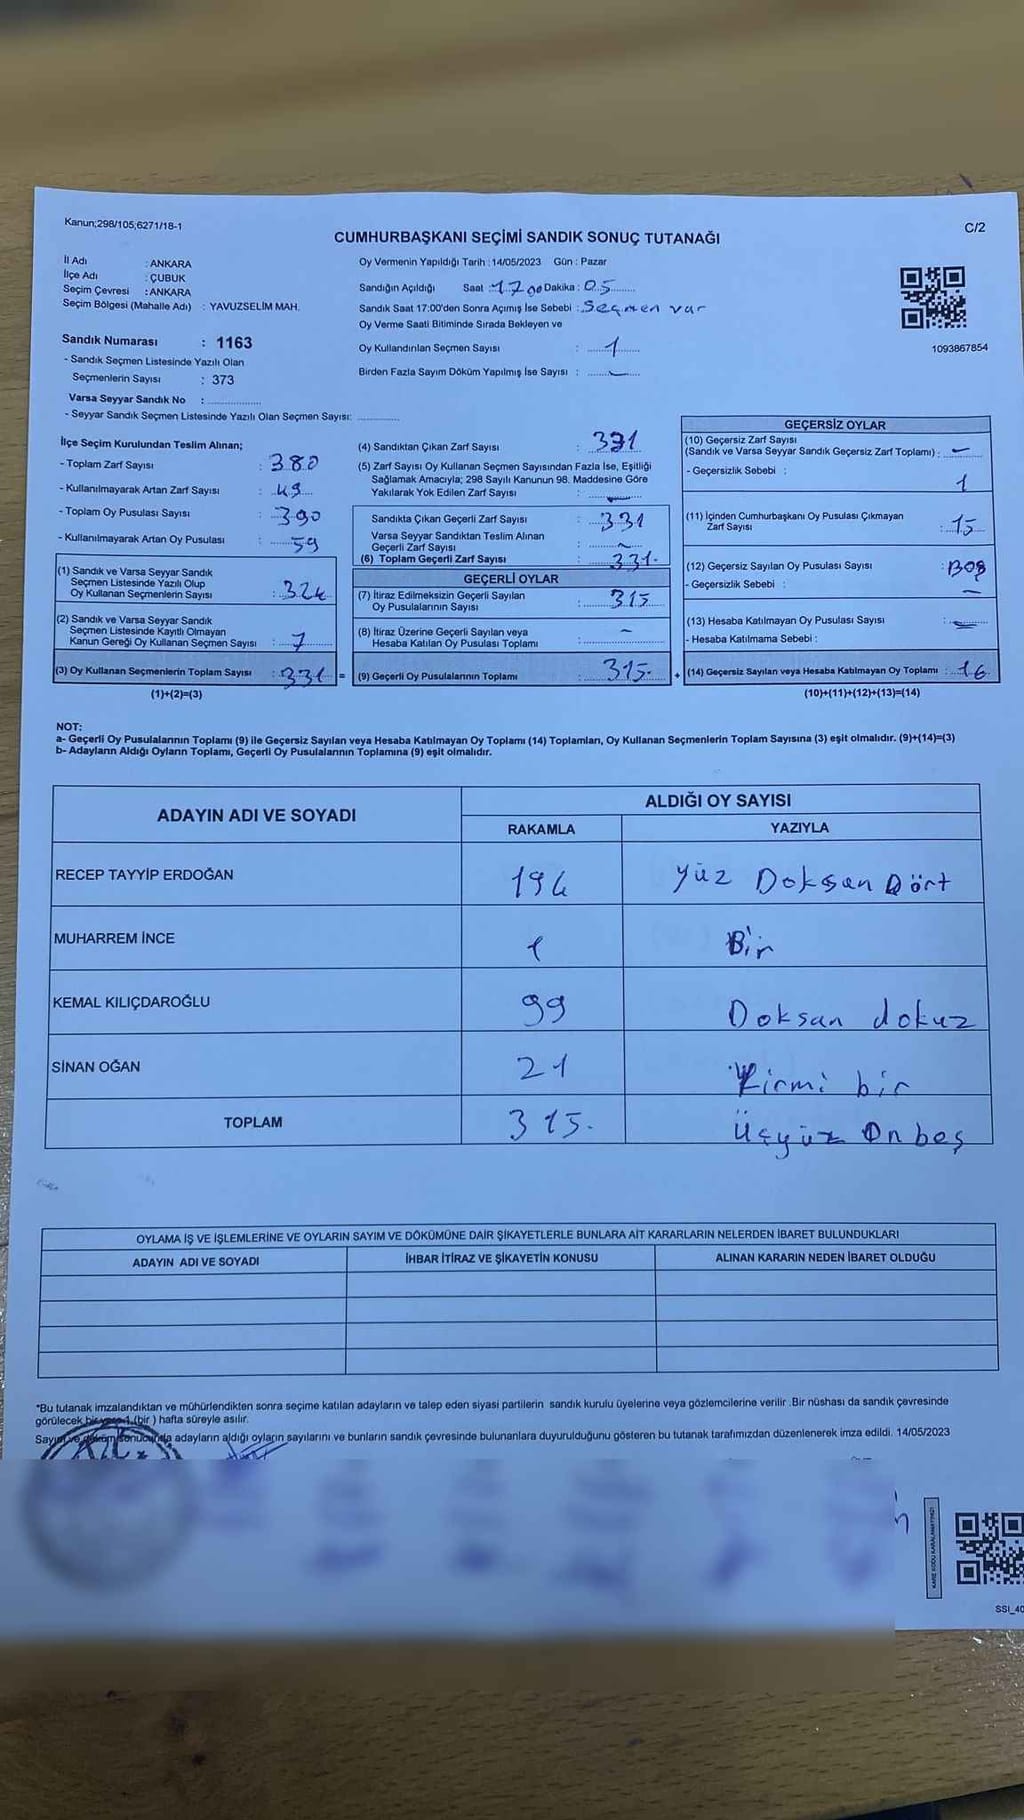 Kanun;298/105;6271/18-1
C/2
CUMHURBAŞKANI SEÇİMİ SANDIK SONUÇ TUTANAĞI
İl Adı : ANKARA
İlçe Adı : ÇUBUK
Seçim Çevresi : ANKARA
Seçim Bölgesi (Mahalle Adı) : YAVUZSELİM MAH.
Oy Vermenin Yapıldığı Tarih : 14/05/2023 Gün : Pazar
Sandığın Açıldığı Saat : 17 00 Dakika : 05
Sandık Saat 17:00'den Sonra Açımış İse Sebebi : Seçmen var
Oy Verme Saati Bitiminde Sırada Bekleyen ve
Oy Kullandırılan Seçmen Sayısı : 1
Birden Fazla Sayım Döküm Yapılmış İse Sayısı : -
1093867854
Sandık Numarası : 1163
- Sandık Seçmen Listesinde Yazılı Olan
Seçmenlerin Sayısı : 373
Varsa Seyyar Sandık No :
- Seyyar Sandık Seçmen Listesinde Yazılı Olan Seçmen Sayısı:
İlçe Seçim Kurulundan Teslim Alınan;
- Toplam Zarf Sayısı : 380
- Kullanılmayarak Artan Zarf Sayısı : 49
- Toplam Oy Pusulası Sayısı : 390
- Kullanılmayarak Artan Oy Pusulası : 59
(1) Sandık ve Varsa Seyyar Sandık
Seçmen Listesinde Yazılı Olup
Oy Kullanan Seçmenlerin Sayısı : 324
(2) Sandık ve Varsa Seyyar Sandık
Seçmen Listesinde Kayıtlı Olmayan
Kanun Gereği Oy Kullanan Seçmen Sayısı : 7
(3) Oy Kullanan Seçmenlerin Toplam Sayısı : 331 =
(1)+(2)=(3)
(4) Sandıktan Çıkan Zarf Sayısı : 331
(5) Zarf Sayısı Oy Kullanan Seçmen Sayısından Fazla İse, Eşitliği
Sağlamak Amacıyla; 298 Sayılı Kanunun 98. Maddesine Göre
Yakılarak Yok Edilen Zarf Sayısı : -
Sandıkta Çıkan Geçerli Zarf Sayısı : 331
Varsa Seyyar Sandıktan Teslim Alınan
Geçerli Zarf Sayısı : -
(6) Toplam Geçerli Zarf Sayısı : 331.
GEÇERLİ OYLAR
(7) İtiraz Edilmeksizin Geçerli Sayılan
Oy Pusulalarının Sayısı : 315
(8) İtiraz Üzerine Geçerli Sayılan veya
Hesaba Katılan Oy Pusulası Toplamı : -
(9) Geçerli Oy Pusulalarının Toplamı : 315. +
GEÇERSİZ OYLAR
(10) Geçersiz Zarf Sayısı
(Sandık ve Varsa Seyyar Sandık Geçersiz Zarf Toplamı) : -
- Geçersizlik Sebebi :
1
(11) İçinden Cumhurbaşkanı Oy Pusulası Çıkmayan
Zarf Sayısı : 15
(12) Geçersiz Sayılan Oy Pusulası Sayısı : Boş
- Geçersizlik Sebebi : -
(13) Hesaba Katılmayan Oy Pusulası Sayısı : -
- Hesaba Katılmama Sebebi :
(14) Geçersiz Sayılan veya Hesaba Katılmayan Oy Toplamı : 16
(10)+(11)+(12)+(13)=(14)
NOT:
a- Geçerli Oy Pusulalarının Toplamı (9) ile Geçersiz Sayılan veya Hesaba Katılmayan Oy Toplamı (14) Toplamları, Oy Kullanan Seçmenlerin Toplam Sayısına (3) eşit olmalıdır. (9)+(14)=(3)
b- Adayların Aldığı Oyların Toplamı, Geçerli Oy Pusulalarının Toplamına (9) eşit olmalıdır.
ADAYIN ADI VE SOYADI
ALDIĞI OY SAYISI
RAKAMLA YAZIYLA
RECEP TAYYİP ERDOĞAN 194 Yüz Doksan Dört
MUHARREM İNCE 1 Bir
KEMAL KILIÇDAROĞLU 99 Doksan dokuz
SİNAN OĞAN 21 Yirmi bir
TOPLAM 315. Üçyüz Onbeş
OYLAMA İŞ VE İŞLEMLERİNE VE OYLARIN SAYIM VE DÖKÜMÜNE DAİR ŞİKAYETLERLE BUNLARA AİT KARARLARIN NELERDEN İBARET BULUNDUKLARI
ADAYIN ADI VE SOYADI İHBAR İTİRAZ VE ŞİKAYETİN KONUSU ALINAN KARARIN NEDEN İBARET OLDUĞU
*Bu tutanak imzalandıktan ve mühürlendikten sonra seçime katılan adayların ve talep eden siyasi partilerin sandık kurulu üyelerine veya gözlemcilerine verilir .Bir nüshası da sandık çevresinde
görülecek bir yere 1 (bir ) hafta süreyle asılır.
Sayım ve döküm sonucunda adayların aldığı oyların sayılarını ve bunların sandık çevresinde bulunanlara duyurulduğunu gösteren bu tutanak tarafımızdan düzenlenerek imza edildi. 14/05/2023
KARE KODU KARALAMAYINIZ!
SSI_40